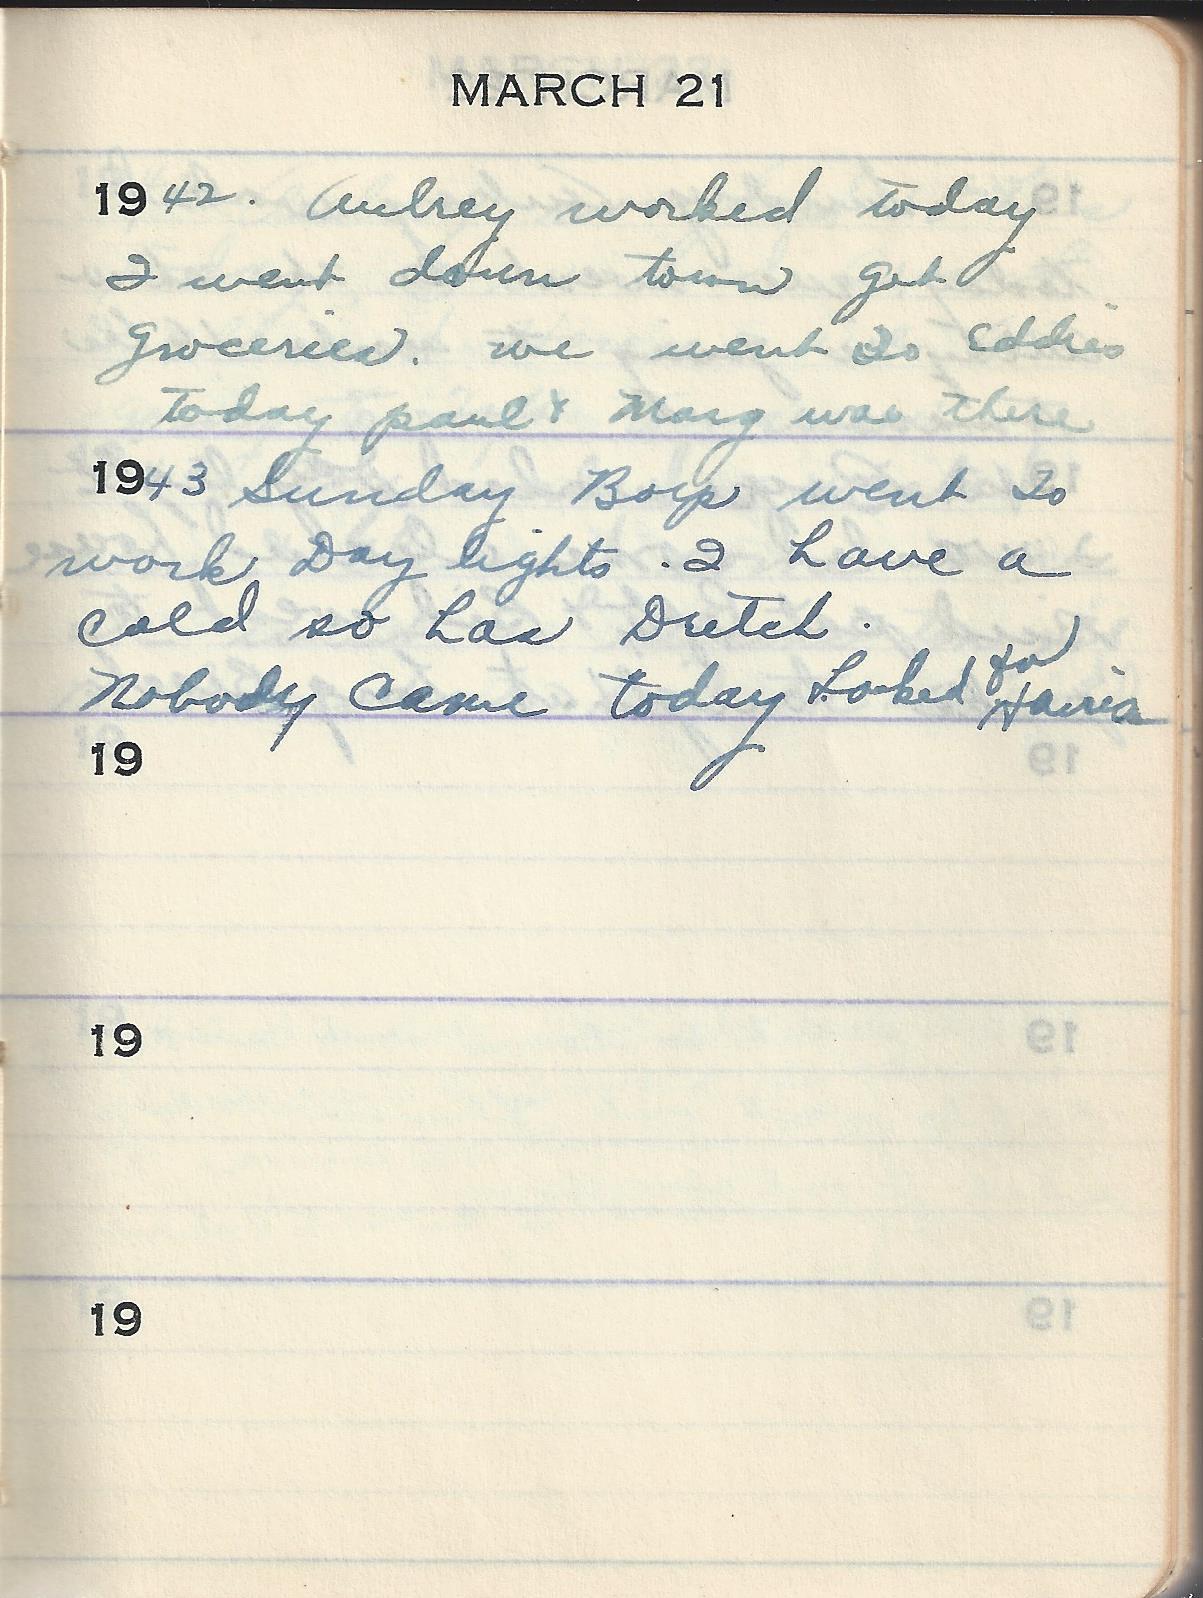 MARCH 21
1942. Aubrey worked today
I went down town got
Groceries. we went to Eddies
today paul & Marg was there
1943 Sunday Boys went to
work Day lights. I have a
cold so has Dutch.
Nobody came today Looked for
19
19
19